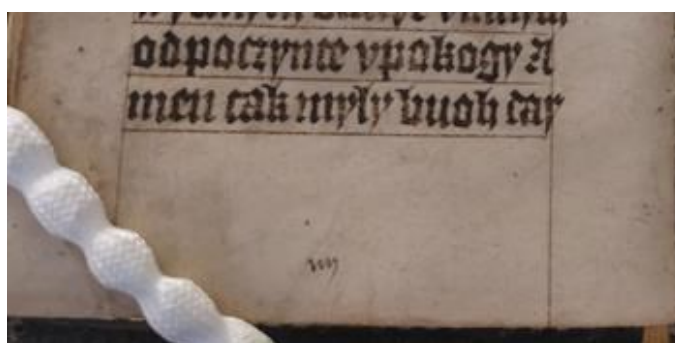 odpoczynte vpokogy A
men tak myly buoh day
iiij